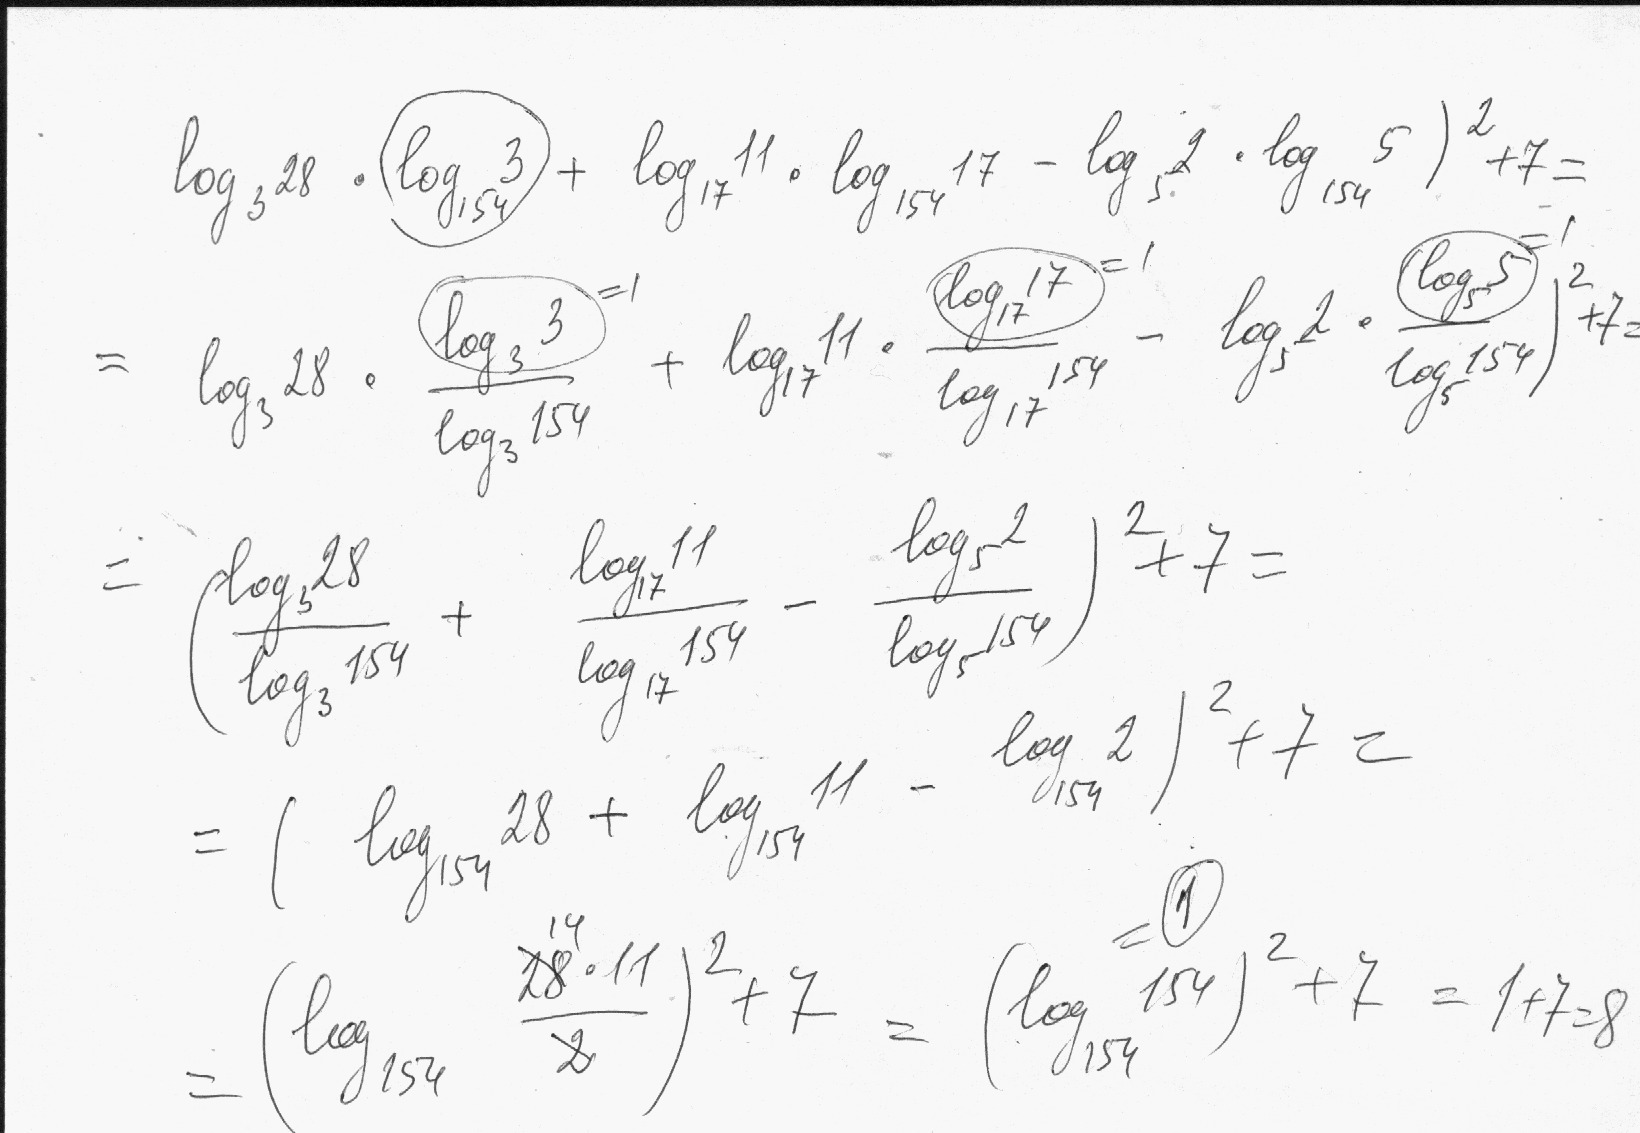 log₃28 · log₁₅₄3 + log₁₇11 · log₁₅₄17 - log₅2 · log₁₅₄5 )² + 7 =
= log₃28 · (log₃3)/(log₃154) + log₁₇11 · (log₁₇17)/(log₁₇154) - log₅2 · (log₅5)/(log₅154) )² + 7 =
=1 =1 =1
= ( (log₃28)/(log₃154) + (log₁₇11)/(log₁₇154) - (log₅2)/(log₅154) )² + 7 =
= ( log₁₅₄28 + log₁₅₄11 - log₁₅₄2 )² + 7 =
14 = 1
= ( log₁₅₄ (28·11)/2 )² + 7 = ( log₁₅₄154 )² + 7 = 1+7=8